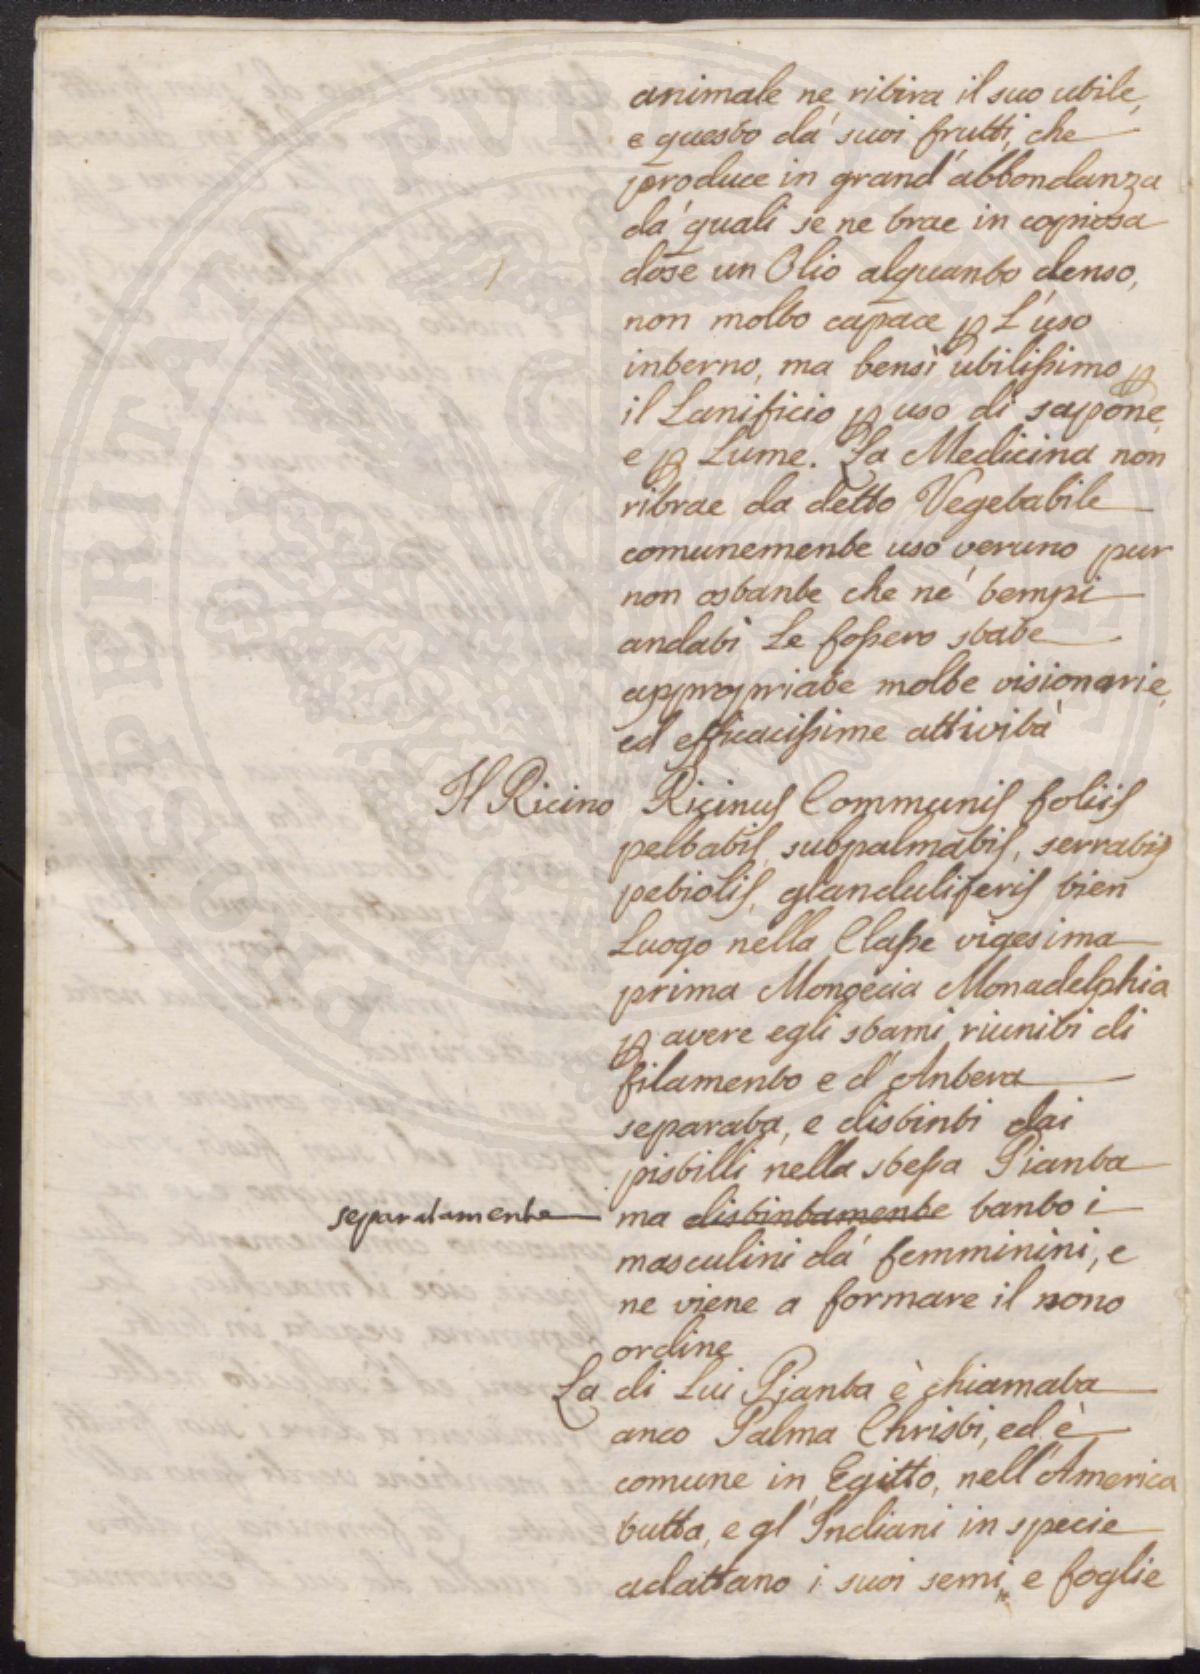 animale ne ritira il suo utile,
e questo da' suoi frutti, che
produce in grand'abbondanza
da' quali se ne trae in copiosa
dose un Olio alquanto denso,
non molto capace ꝑ L'uso
interno, ma bensì utilissimo ꝑ
il Lanificio ꝑ uso di sapone,
e ꝑ Lume. La Medicina non
ritrae da detto Vegetabile
comunemente uso veruno pur
non ostante che ne' tempi
andati Le fossero state
appropriate molte visionarie,
ed efficacissime attività
Il Ricino Ricinus Communis foliis
peltatis, subpalmatis, serratis
petiolis, glanduliferis tien
Luogo nella Classe vigesima
prima Monoecia Monadelphia
ꝑ avere egli stami riuniti di
filamento e d'Antera
separata, e distinti dai
pistilli nella stessa Pianta
separatamente ma distintamente tanto i
masculini da' femminini, e
ne viene a formare il nono
ordine
La di Lui Pianta è chiamata
anco Palma Christi, ed è
comune in Egitto, nell'America
tutta, e gl'Indiani in specie
adattano i suoi semi, e foglie
PROSPERITATI PVBLICAE